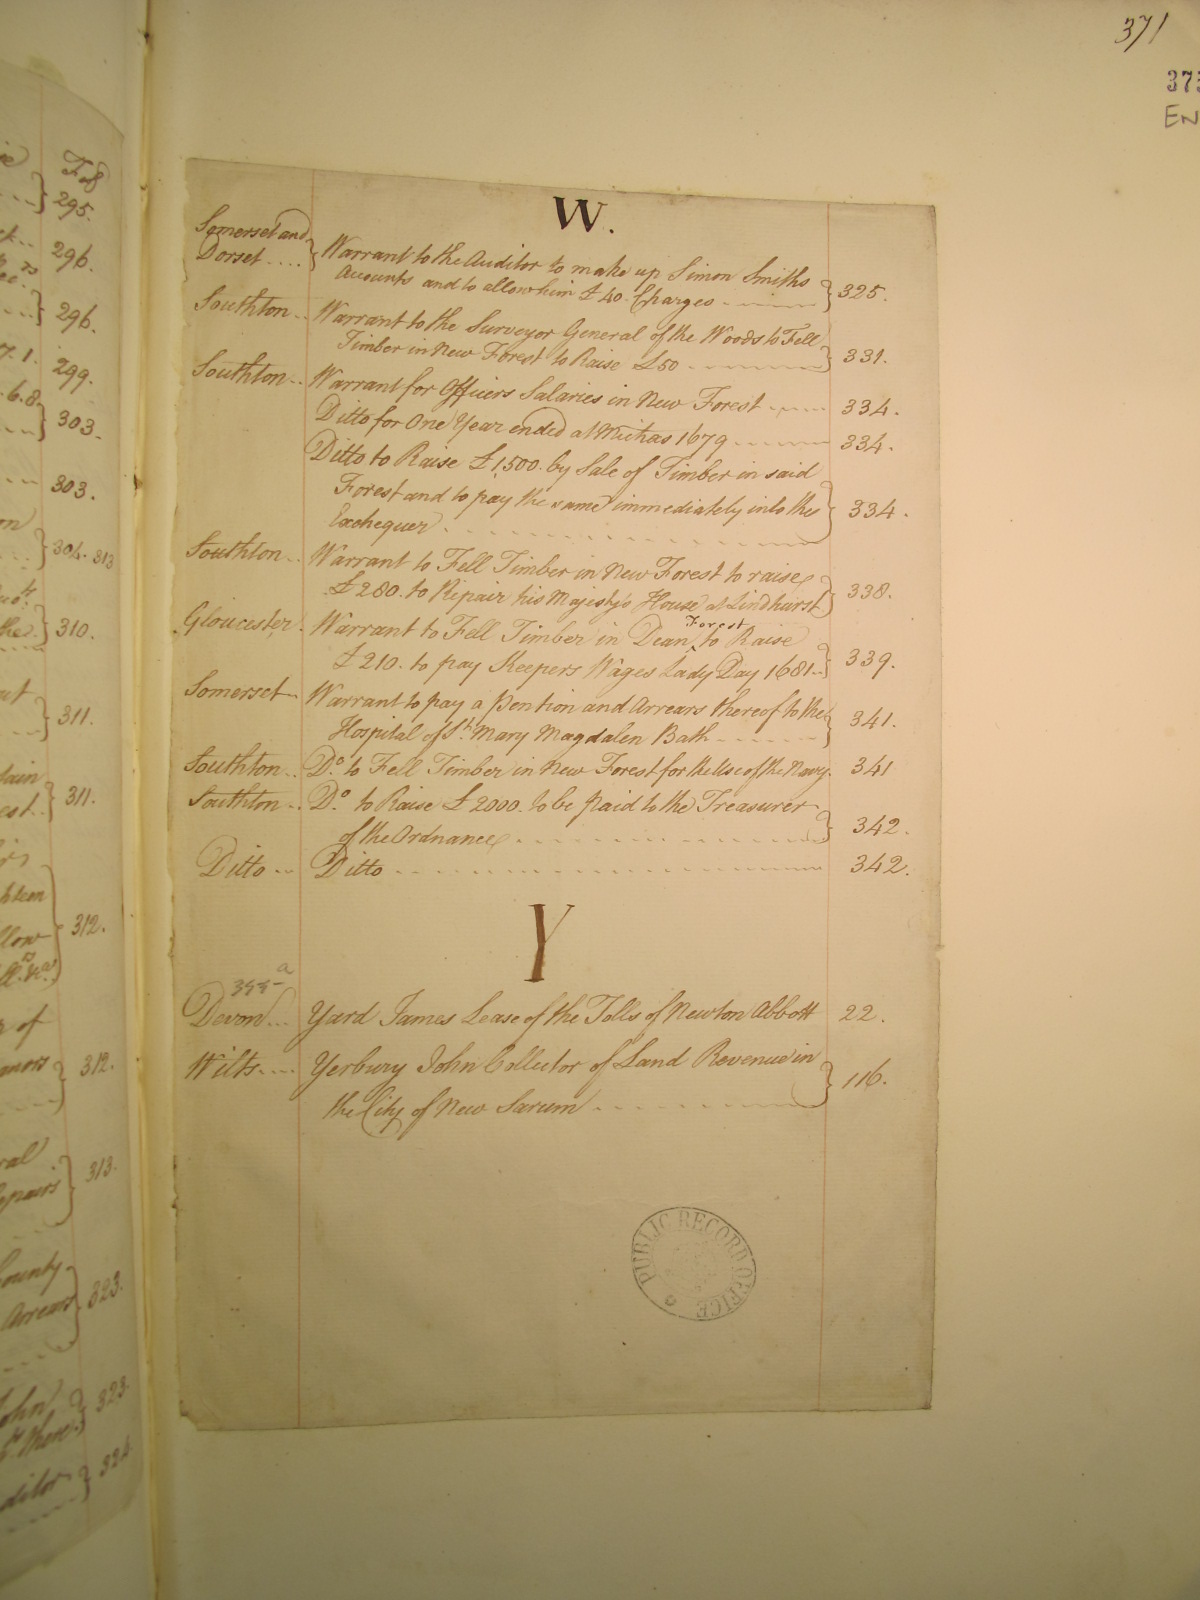 371
373
EN
Fol
295.
296.
296.
299.
303.
303.
304. 313
310.
311.
311.
312.
312.
313.
323.
323.
324
W.
Somerset and
Dorset .... Warrant to the Auditor to make up Simon Smiths
Accounts and to allow him £40. Charges 325.
Southton.. Warrant to the Surveyor General of the Woods to Fell
Timber in New Forest to Raise £50 331.
Southton.. Warrant for Officers Salaries in New Forest 334.
Ditto for One Year ended at Michas 1679 334.
Ditto to Raise £1,500. by Sale of Timber in said
Forest and to pay the same immediately into the
Exchequer 334.
Southton.. Warrant to Fell Timber in New Forest to raise
£280. to Repair his Majesty's House at Lindhurst 338.
Gloucester. Warrant to Fell Timber in Dean Forest to Raise
£210. to pay Keepers Wages Lady Day 1681.. 339.
Somerset.. Warrant to pay a Pention and Arrears thereof to the
Hospital of St. Mary Magdalen Bath 341.
Southton.. Do. to Fell Timber in New Forest for the Use of the Navy. 341
Southton.. Do. to Raise £2000. to be paid to the Treasurer
of the Ordnance 342.
Ditto.. Ditto 342.
Y
Devon... Yard James Lease of the Tolls of Newton Abbott 22.
Wilts.... Yerbury John Collector of Land Revenue in
the City of New Sarum 116.
PUBLIC RECORD OFFICE